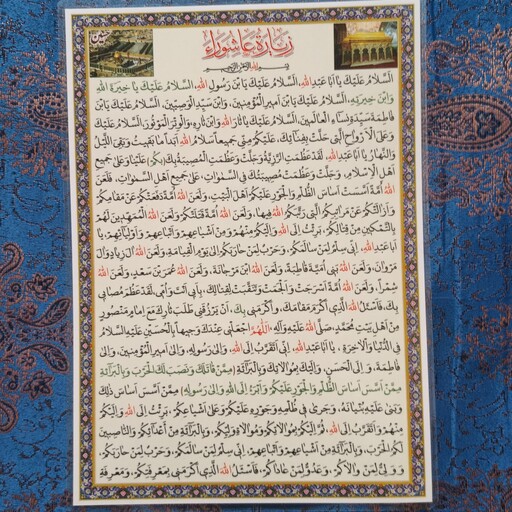 زیارة عاشوراء
بسم الله الرحمن الرحیم
اَلسَّلامُ عَلَيْكَ يا اَبا عَبْدِاللهِ، اَلسَّلامُ عَلَيْكَ يَابْنَ رَسُولِ اللهِ، اَلسَّلامُ عَلَيْكَ يا خِيَرَةَ اللهِ
وَابْنَ خِيَرَتِهِ، اَلسَّلامُ عَلَيْكَ يَابْنَ اَميرِ الْمُؤْمِنينَ، وَابْنَ سَيِّدِ الْوَصِيّينَ، اَلسَّلامُ عَلَيْكَ يَابْنَ
فاطِمَةَ سَيِّدَةِ نِساءِ الْعالَمينَ، اَلسَّلامُ عَلَيْكَ يا ثارَ اللهِ وَابْنَ ثارِهِ، وَالْوِتْرَ الْمَوْتُورَ، اَلسَّلامُ عَلَيْكَ
وَعَلَى الْاَرْواحِ الَّتي حَلَّتْ بِفِنائِكَ، عَلَيْكُمْ مِنّي جَميعاً سَلامُ اللهِ اَبَداً ما بَقيتُ وَبَقِيَ اللَّيْلُ
وَالنَّهارُ، يا اَبا عَبْدِاللهِ، لَقَدْ عَظُمَتِ الرَّزِيَّةُ، وَجَلَّتْ وَعَظُمَتِ الْمُصيبَةُ بِكَ (بِكُمْ) عَلَيْنا وَعَلى جَميعِ
اَهْلِ الْاِسْلامِ، وَجَلَّتْ وَعَظُمَتْ مُصيبَتُكَ فِي السَّمواتِ، عَلى جَميعِ اَهْلِ السَّمواتِ، فَلَعَنَ
اللهُ اُمَّةً اَسَّسَتْ اَساسَ الظُّلْمِ وَالْجَوْرِ عَلَيْكُمْ اَهْلَ الْبَيْتِ، وَلَعَنَ اللهُ اُمَّةً دَفَعَتْكُمْ عَنْ مَقامِكُمْ
وَاَزالَتْكُمْ عَنْ مَراتِبِكُمُ الَّتي رَتَّبَكُمُ اللهُ فيها، وَلَعَنَ اللهُ اُمَّةً قَتَلَتْكُمْ، وَلَعَنَ اللهُ الْمُمَهِّدينَ لَهُمْ
بِالتَّمْكينِ مِنْ قِتالِكُمْ، بَرِئْتُ اِلَى اللهِ وَاِلَيْكُمْ مِنْهُمْ وَمِنْ اَشْياعِهِمْ وَاَتْباعِهِمْ وَاَوْلِيائِهِمْ، يا
اَبا عَبْدِاللهِ، اِنّي سِلْمٌ لِمَنْ سالَمَكُمْ، وَحَرْبٌ لِمَنْ حارَبَكُمْ اِلى يَوْمِ الْقِيامَةِ، وَلَعَنَ اللهُ آلَ زِيادٍ وَآلَ
مَرْوانَ، وَلَعَنَ اللهُ بَني اُمَيَّةَ قاطِبَةً، وَلَعَنَ اللهُ ابْنَ مَرْجانَةَ، وَلَعَنَ اللهُ عُمَرَ بْنَ سَعْدٍ، وَلَعَنَ اللهُ
شِمْراً، وَلَعَنَ اللهُ اُمَّةً اَسْرَجَتْ وَاَلْجَمَتْ وَتَنَقَّبَتْ لِقِتالِكَ، بِاَبي اَنْتَ وَاُمّي، لَقَدْ عَظُمَ مُصابي
بِكَ، فَاَسْئَلُ اللهَ الَّذي اَكْرَمَ مَقامَكَ، وَاَكْرَمَني بِكَ، اَنْ يَرْزُقَني طَلَبَ ثارِكَ مَعَ اِمامٍ مَنْصُورٍ
مِنْ اَهْلِ بَيْتِ مُحَمَّدٍ، صَلَّى اللهُ عَلَيْهِ وَآلِهِ، اَللّهُمَّ اجْعَلْني عِنْدَكَ وَجيهاً بِالْحُسَيْنِ عَلَيْهِ السَّلامُ
فِي الدُّنْيا وَالْآخِرَةِ، يا اَبا عَبْدِاللهِ، اِنّي اَتَقَرَّبُ اِلَى اللهِ، وَاِلى رَسُولِهِ، وَاِلى اَميرِ الْمُؤْمِنينَ، وَاِلى
فاطِمَةَ، وَاِلَى الْحَسَنِ، وَاِلَيْكَ بِمُوالاتِكَ، وَبِالْبَرائَةِ (مِمَّنْ قاتَلَكَ وَنَصَبَ لَكَ الْحَرْبَ، وَبِالْبَرائَةِ
مِمَّنْ اَسَّسَ اَساسَ الظُّلْمِ وَالْجَوْرِ عَلَيْكُمْ وَاَبْرَءُ اِلَى اللهِ وَاِلى رَسُولِهِ) مِمَّنْ اَسَّسَ اَساسَ ذلِكَ
وَبَنى عَلَيْهِ بُنْيانَهُ، وَجَرى في ظُلْمِهِ وَجَوْرِهِ عَلَيْكُمْ وَعَلى اَشْياعِكُمْ، بَرِئْتُ اِلَى اللهِ وَاِلَيْكُمْ
مِنْهُمْ، وَاَتَقَرَّبُ اِلَى اللهِ، ثُمَّ اِلَيْكُمْ بِمُوالاتِكُمْ وَمُوالاةِ وَلِيِّكُمْ، وَبِالْبَرائَةِ مِنْ اَعْدائِكُمْ، وَالنّاصِبينَ
لَكُمُ الْحَرْبَ، وَبِالْبَرائَةِ مِنْ اَشْياعِهِمْ وَاَتْباعِهِمْ، اِنّي سِلْمٌ لِمَنْ سالَمَكُمْ، وَحَرْبٌ لِمَنْ حارَبَكُمْ،
وَوَلِيٌّ لِمَنْ والاكُمْ، وَعَدُوٌّ لِمَنْ عاداكُمْ، فَاَسْئَلُ اللهَ الَّذي اَكْرَمَني بِمَعْرِفَتِكُمْ، وَمَعْرِفَةِ